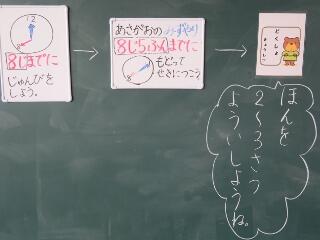 12
8じまでに
じゅんびを
しよう。
あさがおの みずやり
8じ15ふんまでに
もどって
せきにつこう
どくしょ
ほんを
2〜3さつ
よういしようね。